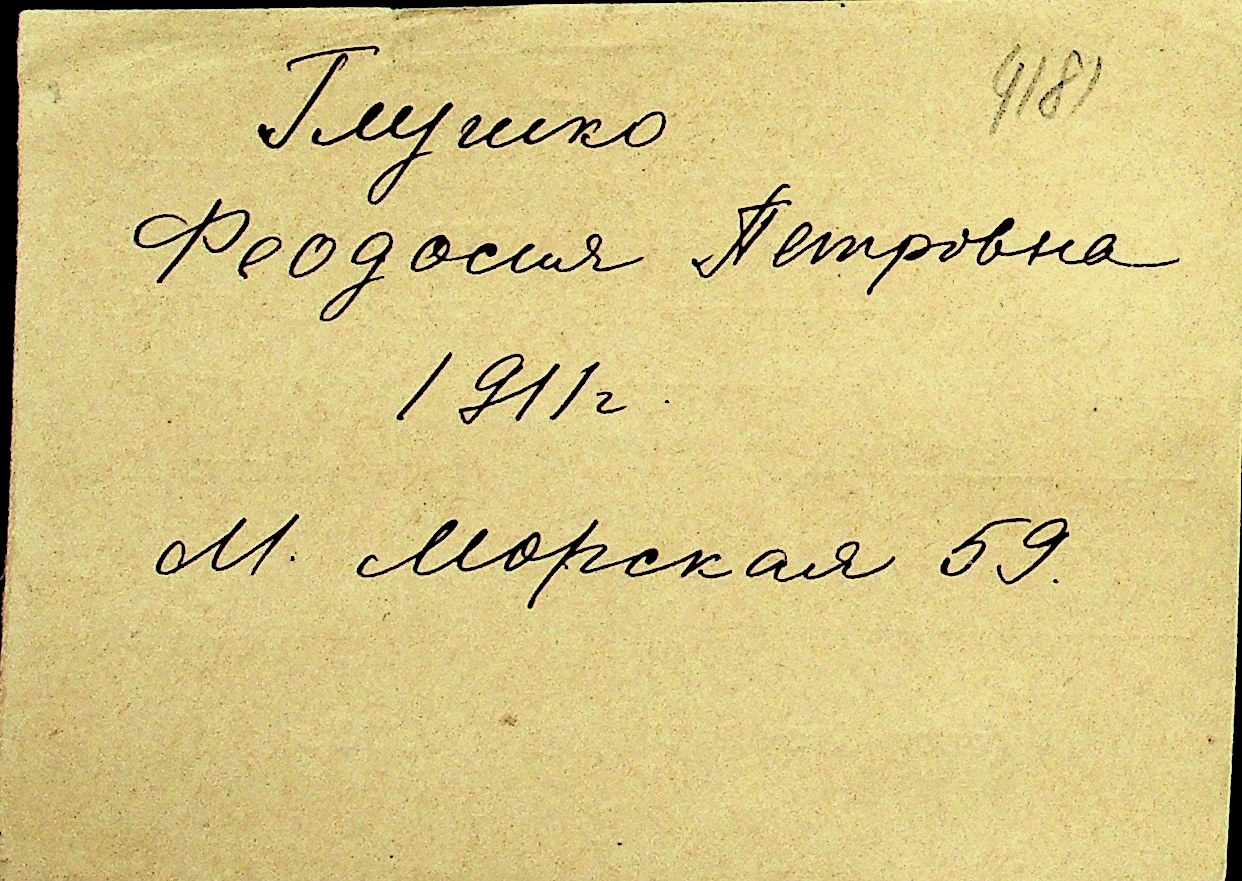 9181
Глушко
Феодосия Петровна
1911г.
М. Морская 59.